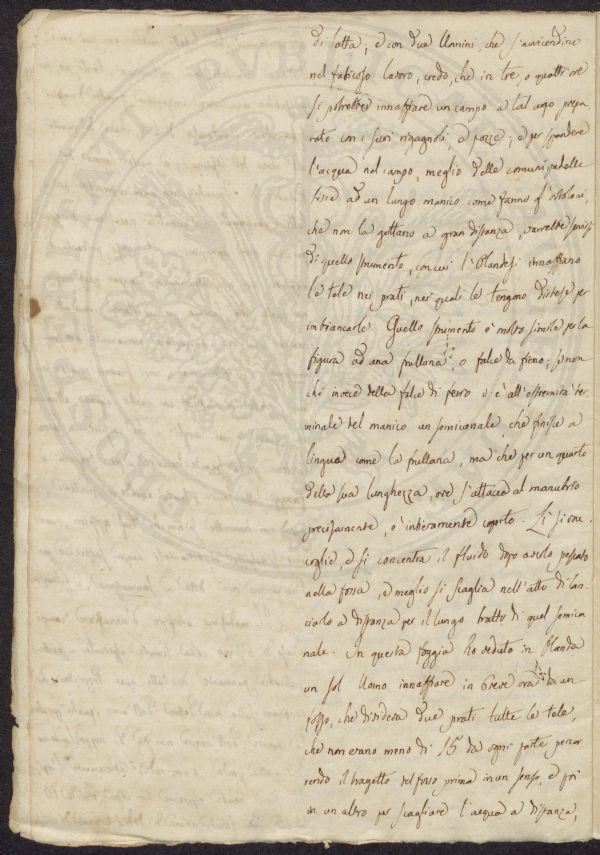 di fatta; e con due Uomini, che s'avvicendino
nel faticoso lavoro, credo, che in tre, o quattr'ore
si potrebbe innaffiare un campo a tal uopo prepa
rato con i suoi rigagnoli, e pozze; e per spandere
l'acqua nel campo, meglio delle comuni padelle
fisse ad un lungo manico come fanno gl'ortolani,
che non la gettano a gran distanza, varrebbe servirsi
di quello strumento, con cui l'Olandesi innaffiano
le tele nei prati, nei quali le tengono distese per
imbiancarle. Quello strumento è molto simile per la
figura ad una frullana, o falce da fieno; se non
chè invece della falce di ferro v'è all'estremità ter
minale del manico un semicanale, che finisce a
lingua come la frullana, ma che per un quarto
della sua lunghezza, ove s'attacca al manubrio
precisamente, è intieramente coperto. Lì si rac
coglie, e si concentra il fluido dopo averlo pescato
nella fossa, e meglio si scaglia nell'atto di lan
ciarlo a distanza per il lungo tratto di quel semica
nale. In questa foggia ho veduto in Olanda
un sol Uomo innaffiare in breve ora da un
fosso, che divideva due prati tutte le tele,
che non erano meno di 15 da ogni parte percor
rendo il tragetto del fosso prima in un senso, e poi
in un altro per scagliare l'acqua a distanza,